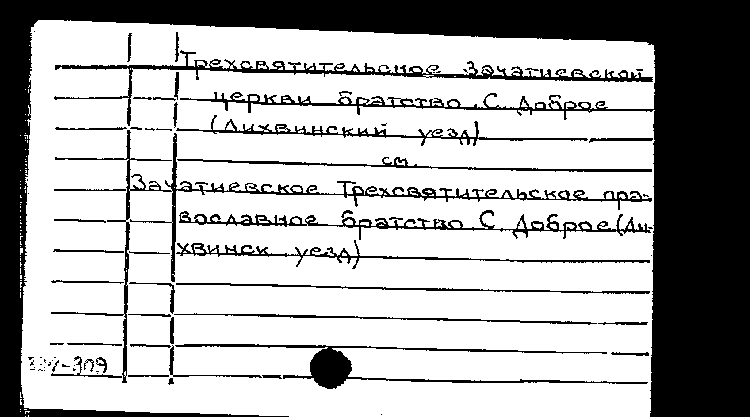 Трехсвятительское Зачатиевской
церкви братство. С. Доброе
(Лихвинский уезд)
см.
Зачатиевское Трехсвятительское пра-
вославное братство С. Доброе (Ли-
хвинск. уезд)